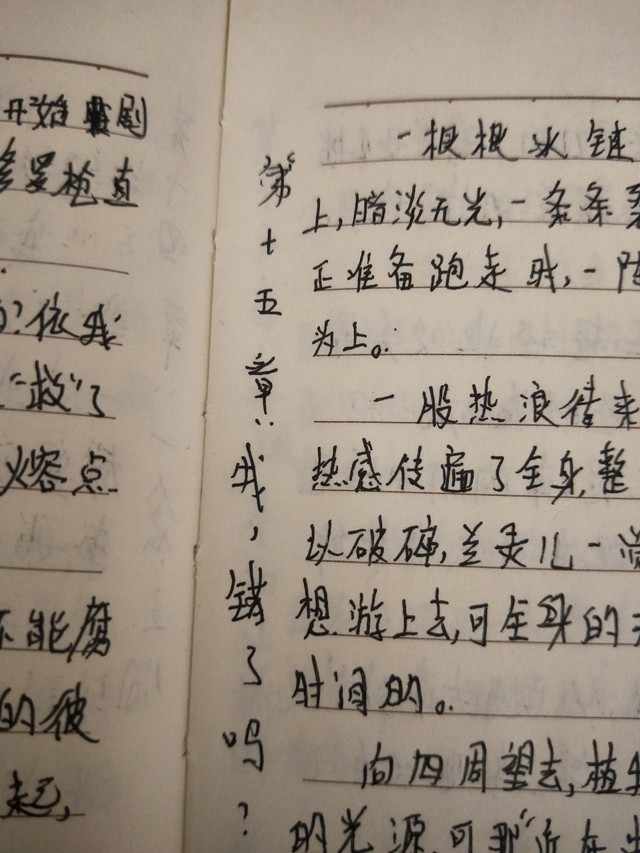 开始
检查
依我
“救”了
熔点
不能腐
的彼
起,
第十五章:我,错了吗?
一根根冰链
上,暗淡无光,一条条
正准备跑走时,一阵
为上。
一股热浪待来
热感传遍了全身,整
以破碎,兰灵儿一
想游上去,可全身的
时间的。
向四周望去,植
的光源,可那“近在